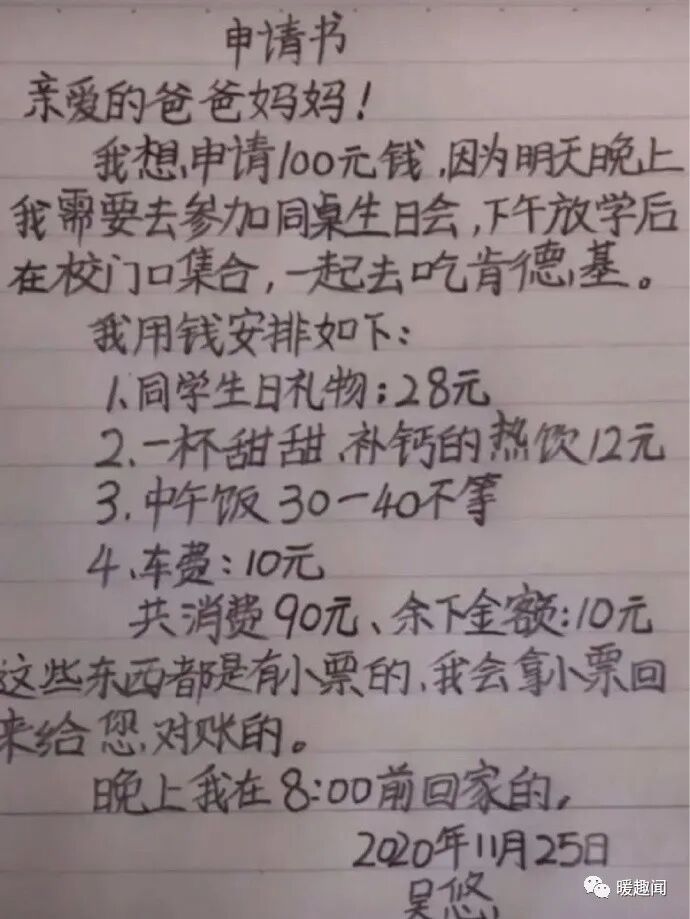 申请书
亲爱的爸爸妈妈！
我想申请100元钱,因为明天晚上
我需要去参加同桌生日会,下午放学后
在校门口集合,一起去吃肯德基。
我用钱安排如下：
1、同学生日礼物：28元
2、一杯甜甜、补钙的热饮12元
3、中午饭30一40不等
4、车费：10元
共消费90元、余下金额:10元
这些东西都是有小票的、我会拿小票回
来给您对账的。
晚上我在8:00前回家的。
2020年11月25日
吴悠
暖趣闻